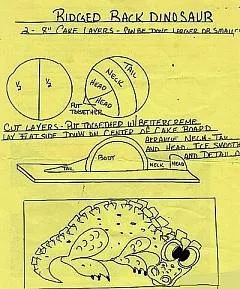 RIDGED BACK DINOSAUR
2 - 8" CAKE LAYERS - CAN BE DONE LARGER OR SMALLER
1/2
1/2
TAIL
NECK
HEAD
HEAD
PUT TOGETHER
CUT LAYERS - PUT TOGETHER W/BETTERCREME
LAY FLAT SIDE DOWN ON CENTER OF CAKE BOARD
ARRANGE NECK - TAIL
AND HEAD. ICE SMOOTH
AND DETAIL
BODY
TAIL
NECK
HEAD